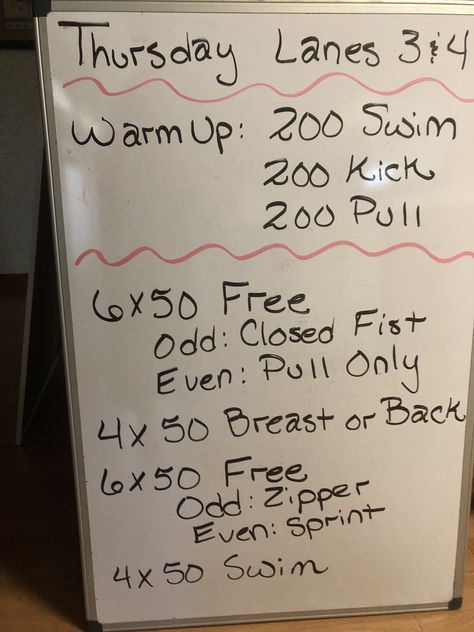 Thursday Lanes 3 & 4
Warm Up: 200 Swim
200 Kick
200 Pull
6x50 Free
Odd: Closed Fist
Even: Pull Only
4x50 Breast or Back
6x50 Free
Odd: Zipper
Even: Sprint
4x50 Swim